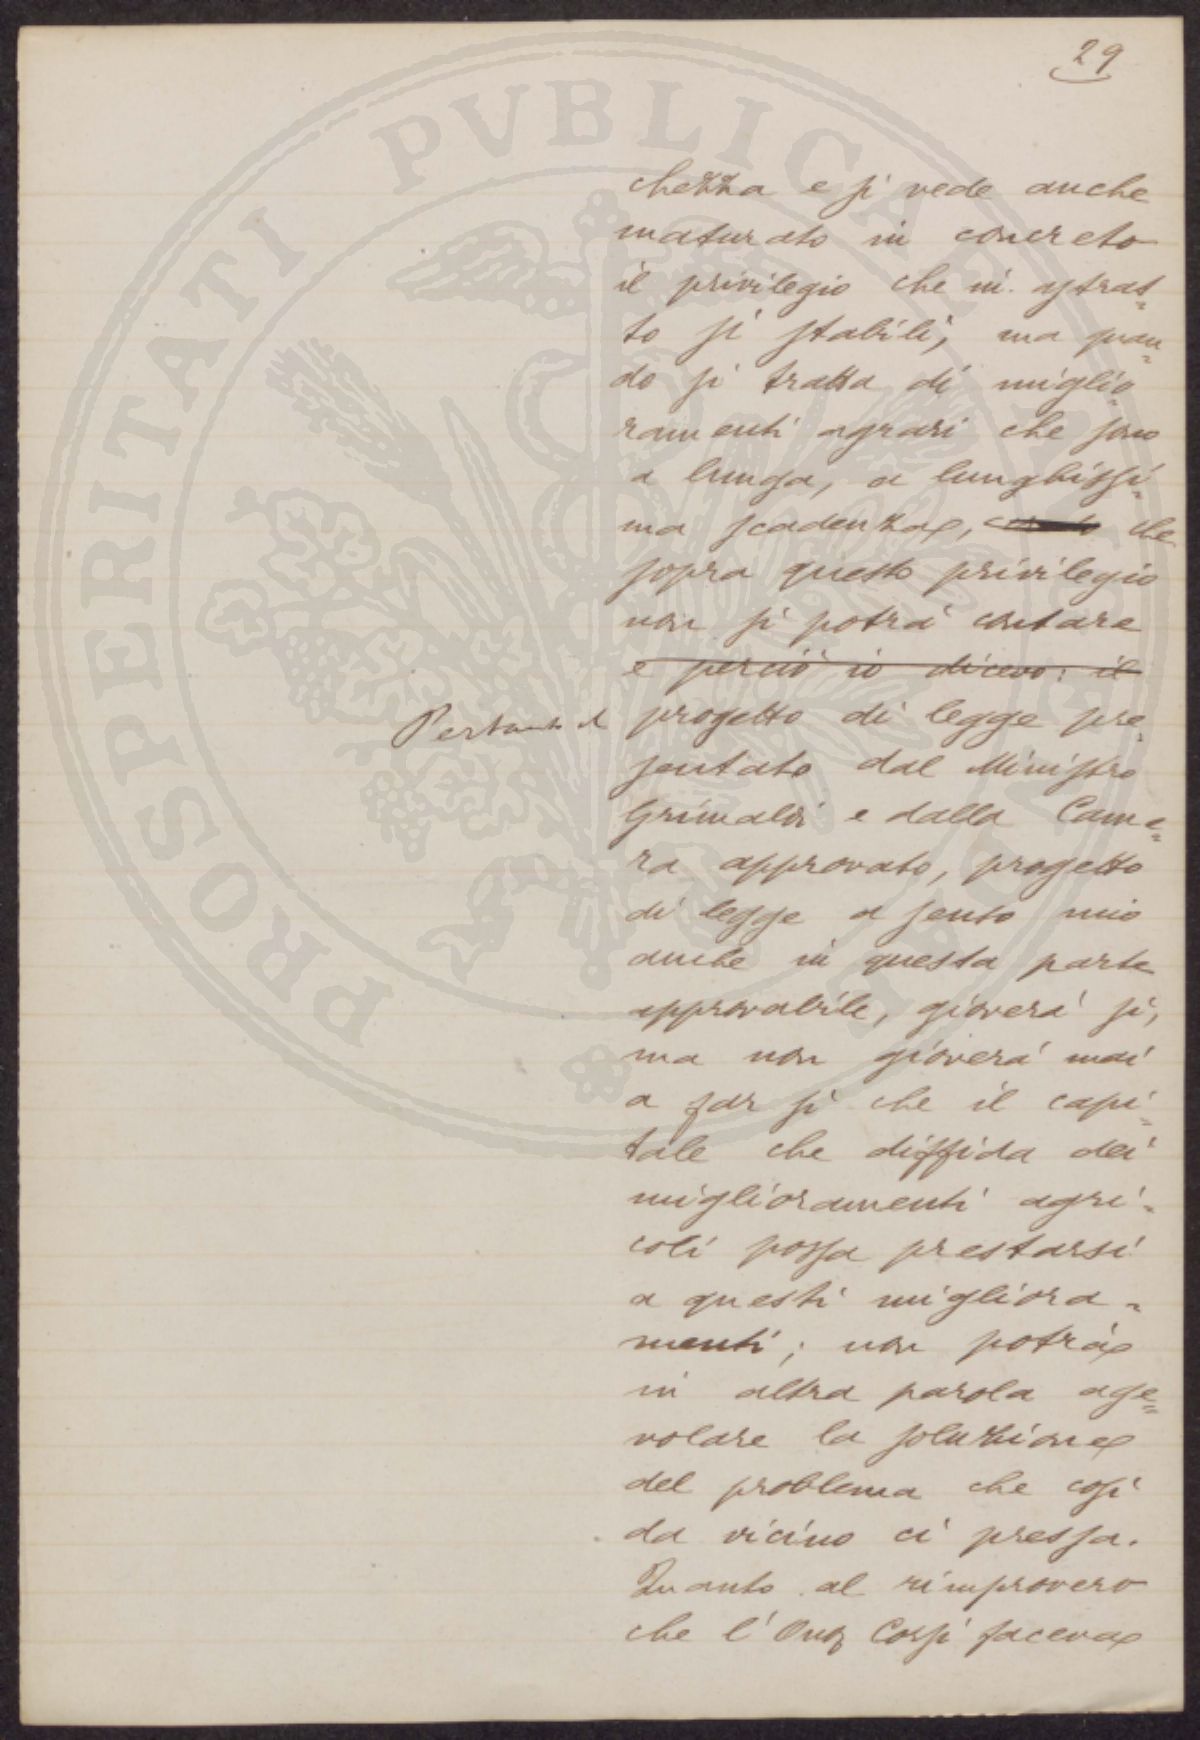 29
chezza e si vede anche
maturato in concreto
il privilegio che in astrat=
to si stabilì, ma quan=
do si tratta di miglio=
ramenti agrari che sono
a lunga, a lunghissi=
ma scadenza, che
sopra questo privilegio
non si potrà contare
e perciò io dicevo: il
Pertanto il progetto di legge pre=
sentato dal Ministro
Grimaldi e dalla Came=
ra approvato, progetto
di legge a senso mio
anche in questa parte
approvabile, gioverà sì,
ma non gioverà mai
a far sì che il capi=
tale che diffida dei
miglioramenti agri=
coli possa prestarsi
a questi migliora=
menti; non potrà
in altra parola age=
volare la soluzione
del problema che così
da vicino ci pressa.
Quanto al rimprovero
che l'Onor Corsi faceva
PROSPERITATI PVBLICAE